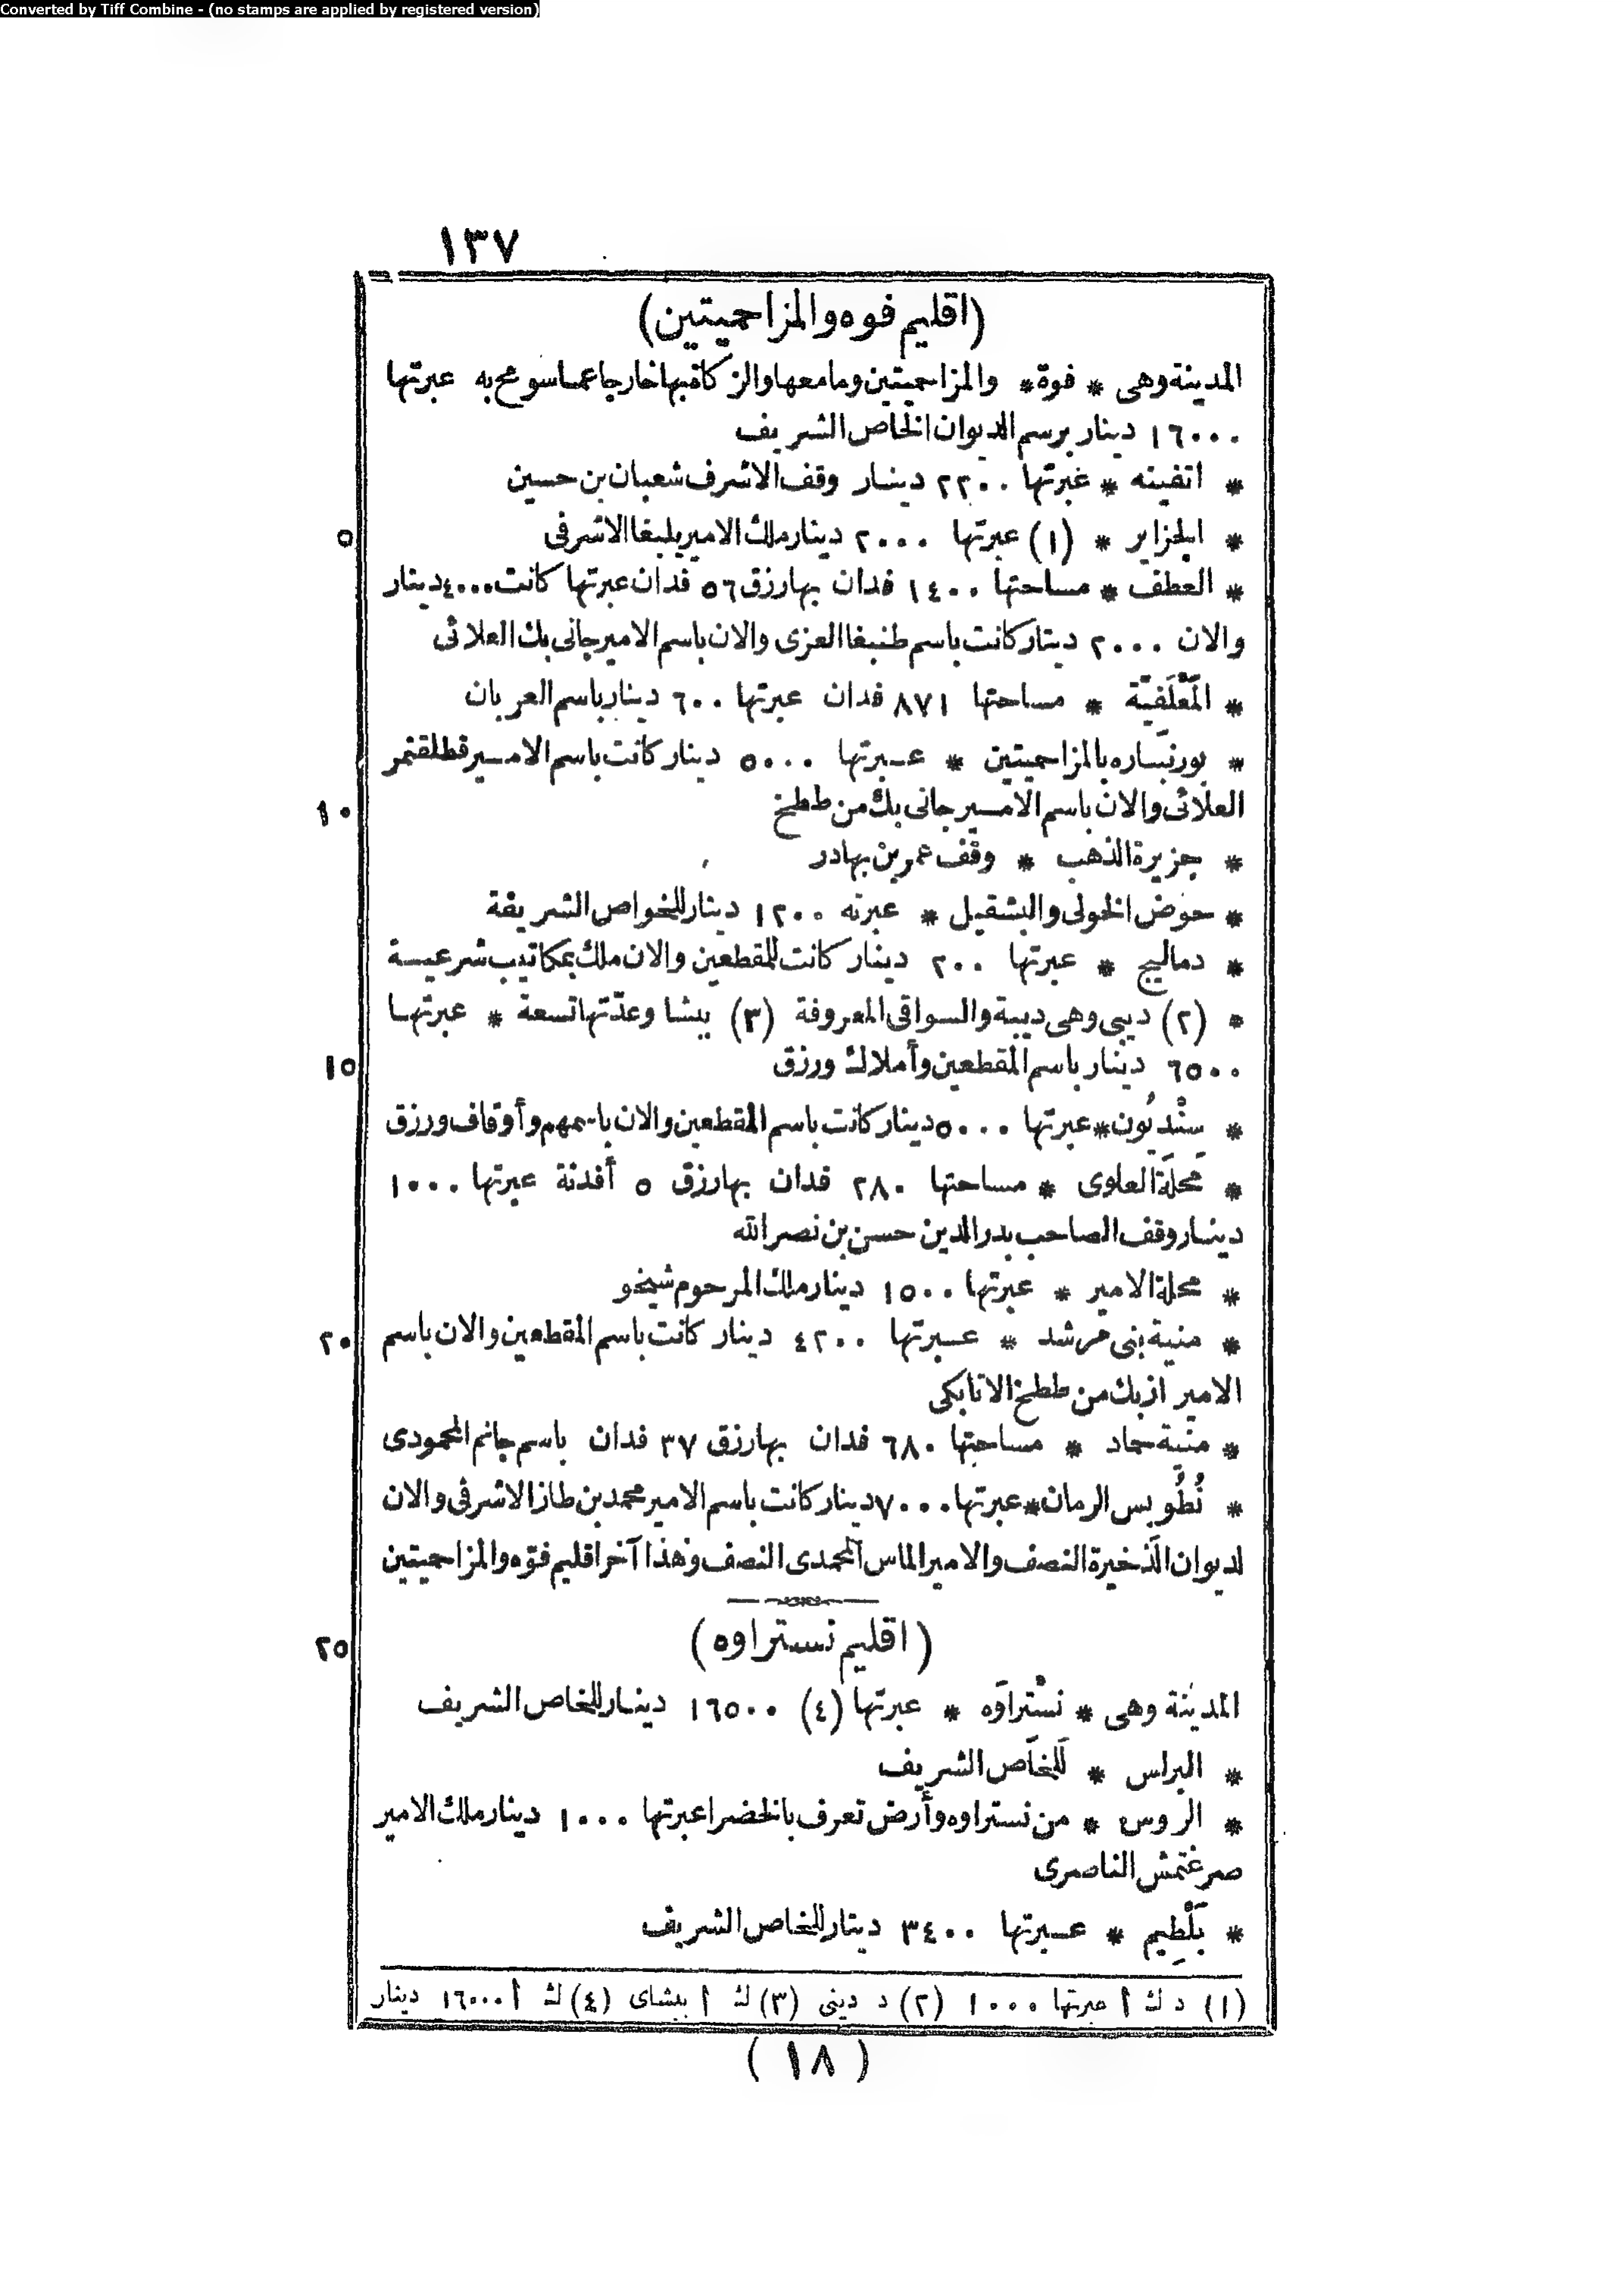 Converted by Tiff Combine - (no stamps are applied by registered version)
١٣٧
(اقليم فوه والمزاحميتين)
المدينة وهى * فوة * والمزاحميتين وما معها والزكاة بها خارجا عما سومح به عبرتها
١٦٠٠٠ دينار برسم الديوان الخاص الشريف
* اتفينه * عبرتها ٢٢٠٠ دينار وقف الاشرف شعبان بن حسين
٥
* الجزاير * (١) عبرتها ٢٠٠٠ دينار ملك الامير يلبغا الاشرفى
* العطف * مساحتها ١٤٠٠ فدان بها رزق ٥٦ فدان عبرتها كانت ٤٠٠٠ دينار
والان ٢٠٠٠ دينار كانت باسم طنبغا العزى والان باسم الامير جانى بك العلائى
* المَعْلَفِيَّة * مساحتها ٨٧١ فدان عبرتها ٦٠٠ دينار باسم العربان
* بورنباره بالمزاحميتين * عبرتها ٥٠٠٠ دينار كانت باسم الامير قطلقتمر
١٠
العلائى والان باسم الامير جانى بك من ططخ
* جزيرة الذهب * وقف عمر بن بهادر
* حوض الخولى والبشقيل * عبرته ١٢٠٠ دينار للخواص الشريفة
* دماليج * عبرتها ٢٠٠ دينار كانت للمقطعين والان ملك بمكاتيب شرعية
* (٢) ديبى وهى ديبة والسواقى المعروفة (٣) ببشا وعدّتها تسعة * عبرتها
١٥
٦٥٠٠ دينار باسم المقطعين وأملاك ورزق
* سِنْديُون * عبرتها ٥٠٠٠ دينار كانت باسم المقطعين والان باسمهم وأوقاف ورزق
* مَحَلَة العلوى * مساحتها ٢٨٠ فدان بها رزق ٥ أفدنة عبرتها ١٠٠٠
دينار وقف الصاحب بدر الدين حسن بن نصر الله
* محلة الامير * عبرتها ١٥٠٠ دينار ملك المرحوم شيخو
٢٠
* منية بنى مرشد * عبرتها ٤٢٠٠ دينار كانت باسم المقطعين والان باسم
الامير ازبك من ططخ الاتابكى
* منية حماد * مساحتها ٦٨٠ فدان بها رزق ٣٧ فدان باسم جانم المحمودى
* نُطُوبس الرمان * عبرتها ٧٠٠٠ دينار كانت باسم الامير محمد بن طاز الاشرفى والان
لديوان الذخيرة النصف والامير الماس المحمدى النصف وهذا آخر اقليم فوّه والمزاحميتين
٢٥
(اقليم نستراوه)
المدينة وهى * نسْتراوَه * عبرتها (٤) ١٦٥٠٠ دينار للخاص الشريف
* البراس * للخاص الشريف
* الروس * من نستراوه وأرض تعرف بالخضرا عبرتها ١٠٠٠ دينار ملك الامير
صرغتمش الناصرى
* بَلْطِيم * عبرتها ٣٤٠٠ دينار للخاص الشريف
(١) د ك أ عبرتها ١٠٠٠ (٢) د دينى (٣) ك أ ببشاى (٤) ك أ ١٦٠٠٠ دينار
(١٨)